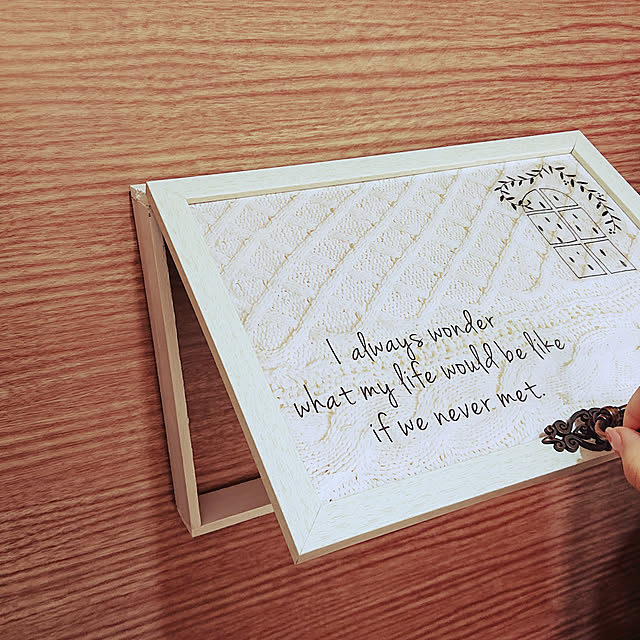 I always wonder
what my life would be like
if we never met.